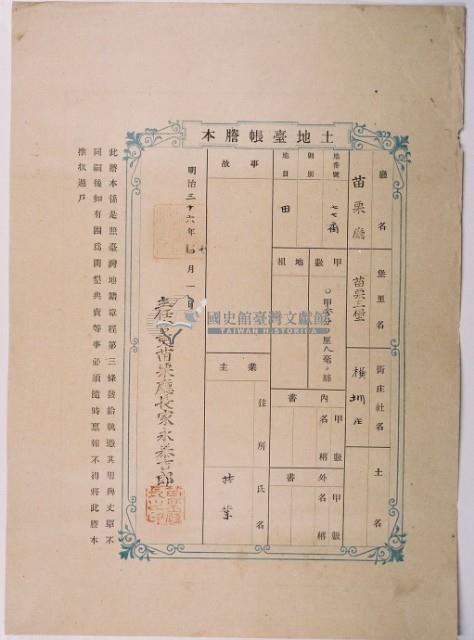 土地臺帳謄本
廳名
苗栗廳
堡里名
苗栗三堡
街庄社名
圳庄
土名
地番號
七七
則別
地目
田
甲數
地租
甲數
內書
名稱
甲數
外書
名稱
事故
業主
住所
氏名
共業
明治三十六年七月一日
主任苗栗廳長家永泰吉郎
苗栗廳長之印
此謄本係是照臺灣地籍章程第三條發給執憑其用與丈單不
同嗣後如有因為開墾典賣等事必須隨時稟報不得將此謄本
推收過戶
國史館臺灣文獻館
TAIWAN HISTORICA